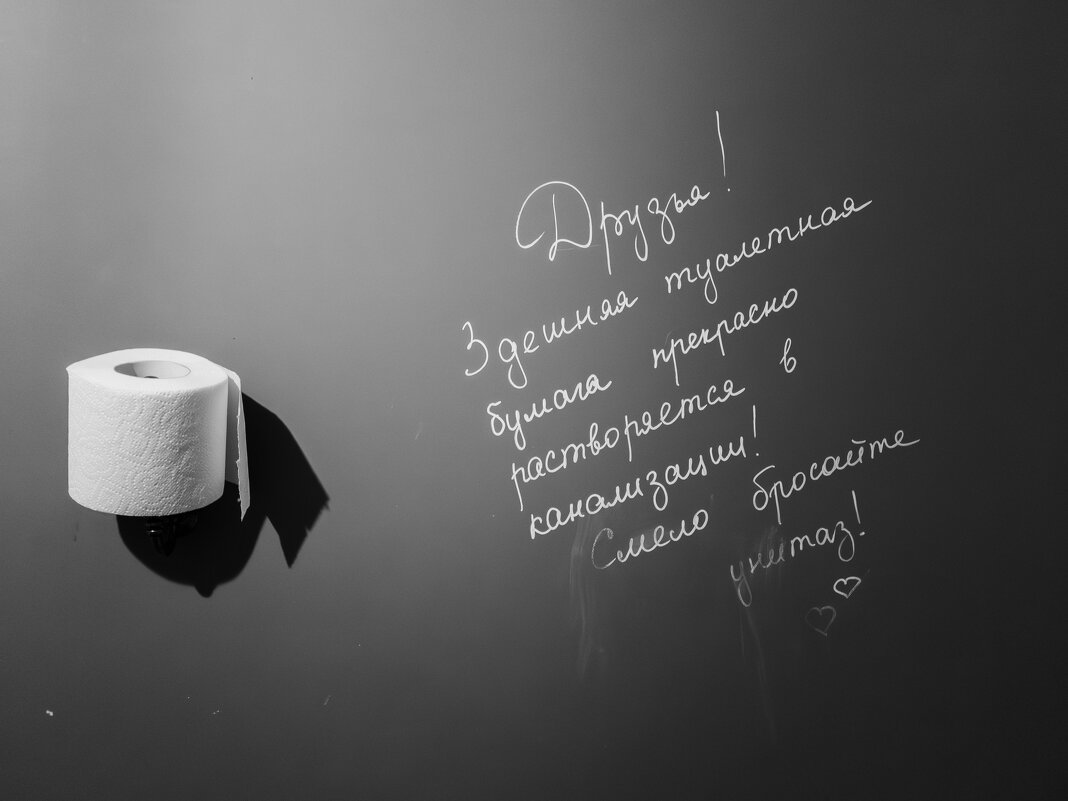 Друзья!
Здешняя туалетная
бумага прекрасно
растворяется в
канализации!
Смело бросайте
унитаз!